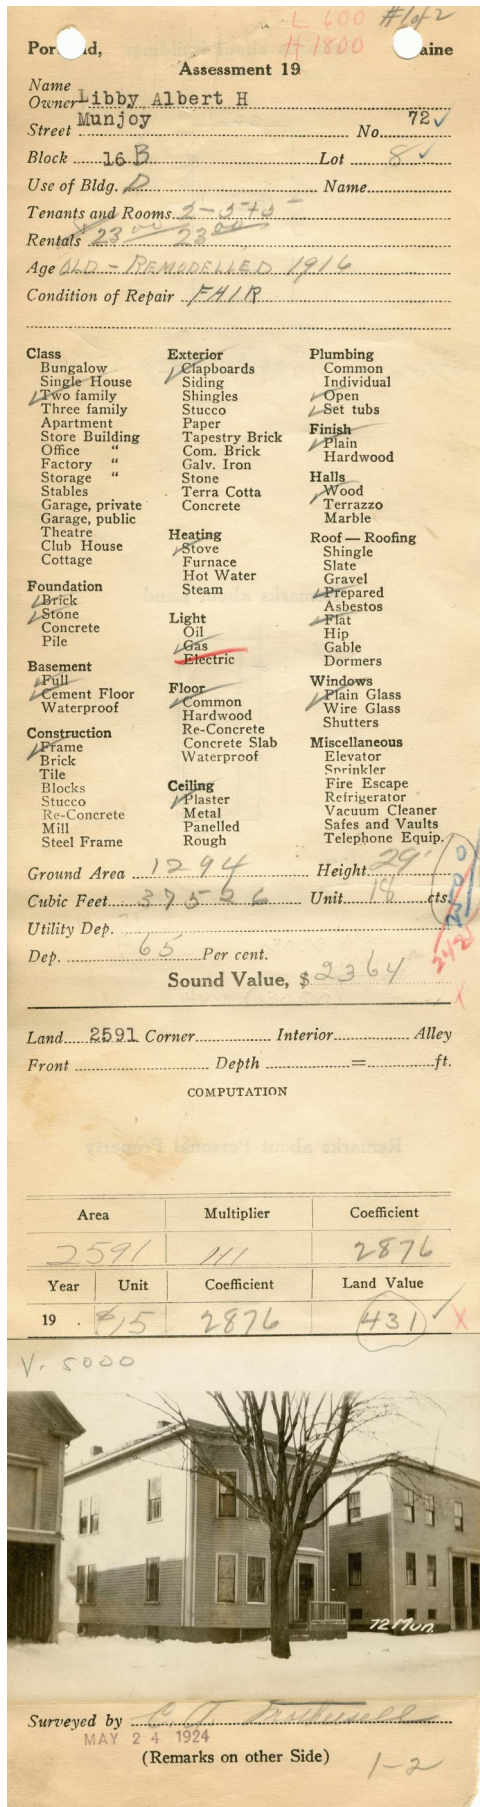 L 600 #1 of 2
H 1800
Portland, Maine
Assessment 19
Name
Owner Libby Albert H
Street Munjoy No. 72
Block 16 B Lot 8
Use of Bldg. D Name
Tenants and Rooms 2-5+5
Rentals 23 00 23 00
Age OLD - REMODELLED 1916
Condition of Repair FAIR
Class
Bungalow
Single House
Two family
Three family
Apartment
Store Building
Office "
Factory "
Storage "
Stables
Garage, private
Garage, public
Theatre
Club House
Cottage
Foundation
Brick
Stone
Concrete
Pile
Basement
Full
Cement Floor
Waterproof
Construction
Frame
Brick
Tile
Blocks
Stucco
Re-Concrete
Mill
Steel Frame
Exterior
Clapboards
Siding
Shingles
Stucco
Paper
Tapestry Brick
Com. Brick
Galv. Iron
Stone
Terra Cotta
Concrete
Heating
Stove
Furnace
Hot Water
Steam
Light
Oil
Gas
Electric
Floor
Common
Hardwood
Re-Concrete
Concrete Slab
Waterproof
Ceiling
Plaster
Metal
Panelled
Rough
Plumbing
Common
Individual
Open
Set tubs
Finish
Plain
Hardwood
Halls
Wood
Terrazzo
Marble
Roof — Roofing
Shingle
Slate
Gravel
Prepared
Asbestos
Flat
Hip
Gable
Dormers
Windows
Plain Glass
Wire Glass
Shutters
Miscellaneous
Elevator
Sprinkler
Fire Escape
Refrigerator
Vacuum Cleaner
Safes and Vaults
Telephone Equip.
Ground Area 1294 Height 29'
Cubic Feet 37526 Unit 18 cts.
Utility Dep.
242
Dep. 65 Per cent.
Sound Value, $ 2364
Land 2591 Corner Interior Alley
Front Depth = ft.
COMPUTATION
Area Multiplier Coefficient
2591 111 2876
Year Unit Coefficient Land Value
19 $15 2876 431
V. 5000
72 Mun.
Surveyed by C. A.
MAY 24 1924
(Remarks on other Side)
1-2